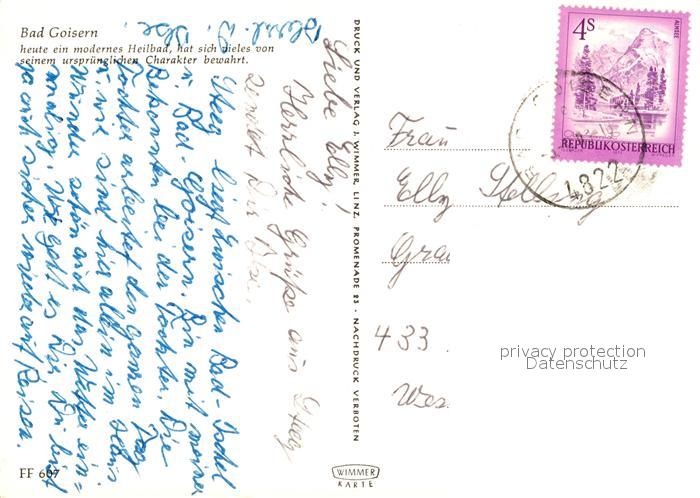 Bad Goisern
heute ein modernes Heilbad, hat sich vieles von
seinem ursprünglichen Charakter bewahrt.
Liebe Elly!
Herrliche Grüße aus Steeg
sendet Dir Ilse.
Steeg liegt zwischen Bad-Ischl
u. Bad Goisern. Bin mit meiner
Bekannten bei der Tochter. Die
Tochter arbeitet den ganzen Tag
u. wir sind hier allein im
schön auch das Wetter
Wie geht es Dir Du bist
ja auch sicher wieder auf Reisen.
Herzl. D. Ilse
FF 607
DRUCK UND VERLAG J. WIMMER, LINZ, PROMENADE 23 · NACHDRUCK VERBOTEN
WIMMER
KARTE
4S
ALMSEE
REPUBLIK ÖSTERREICH
4822
Frau
Elly
Gra
433
Wes
privacy protection
Datenschutz